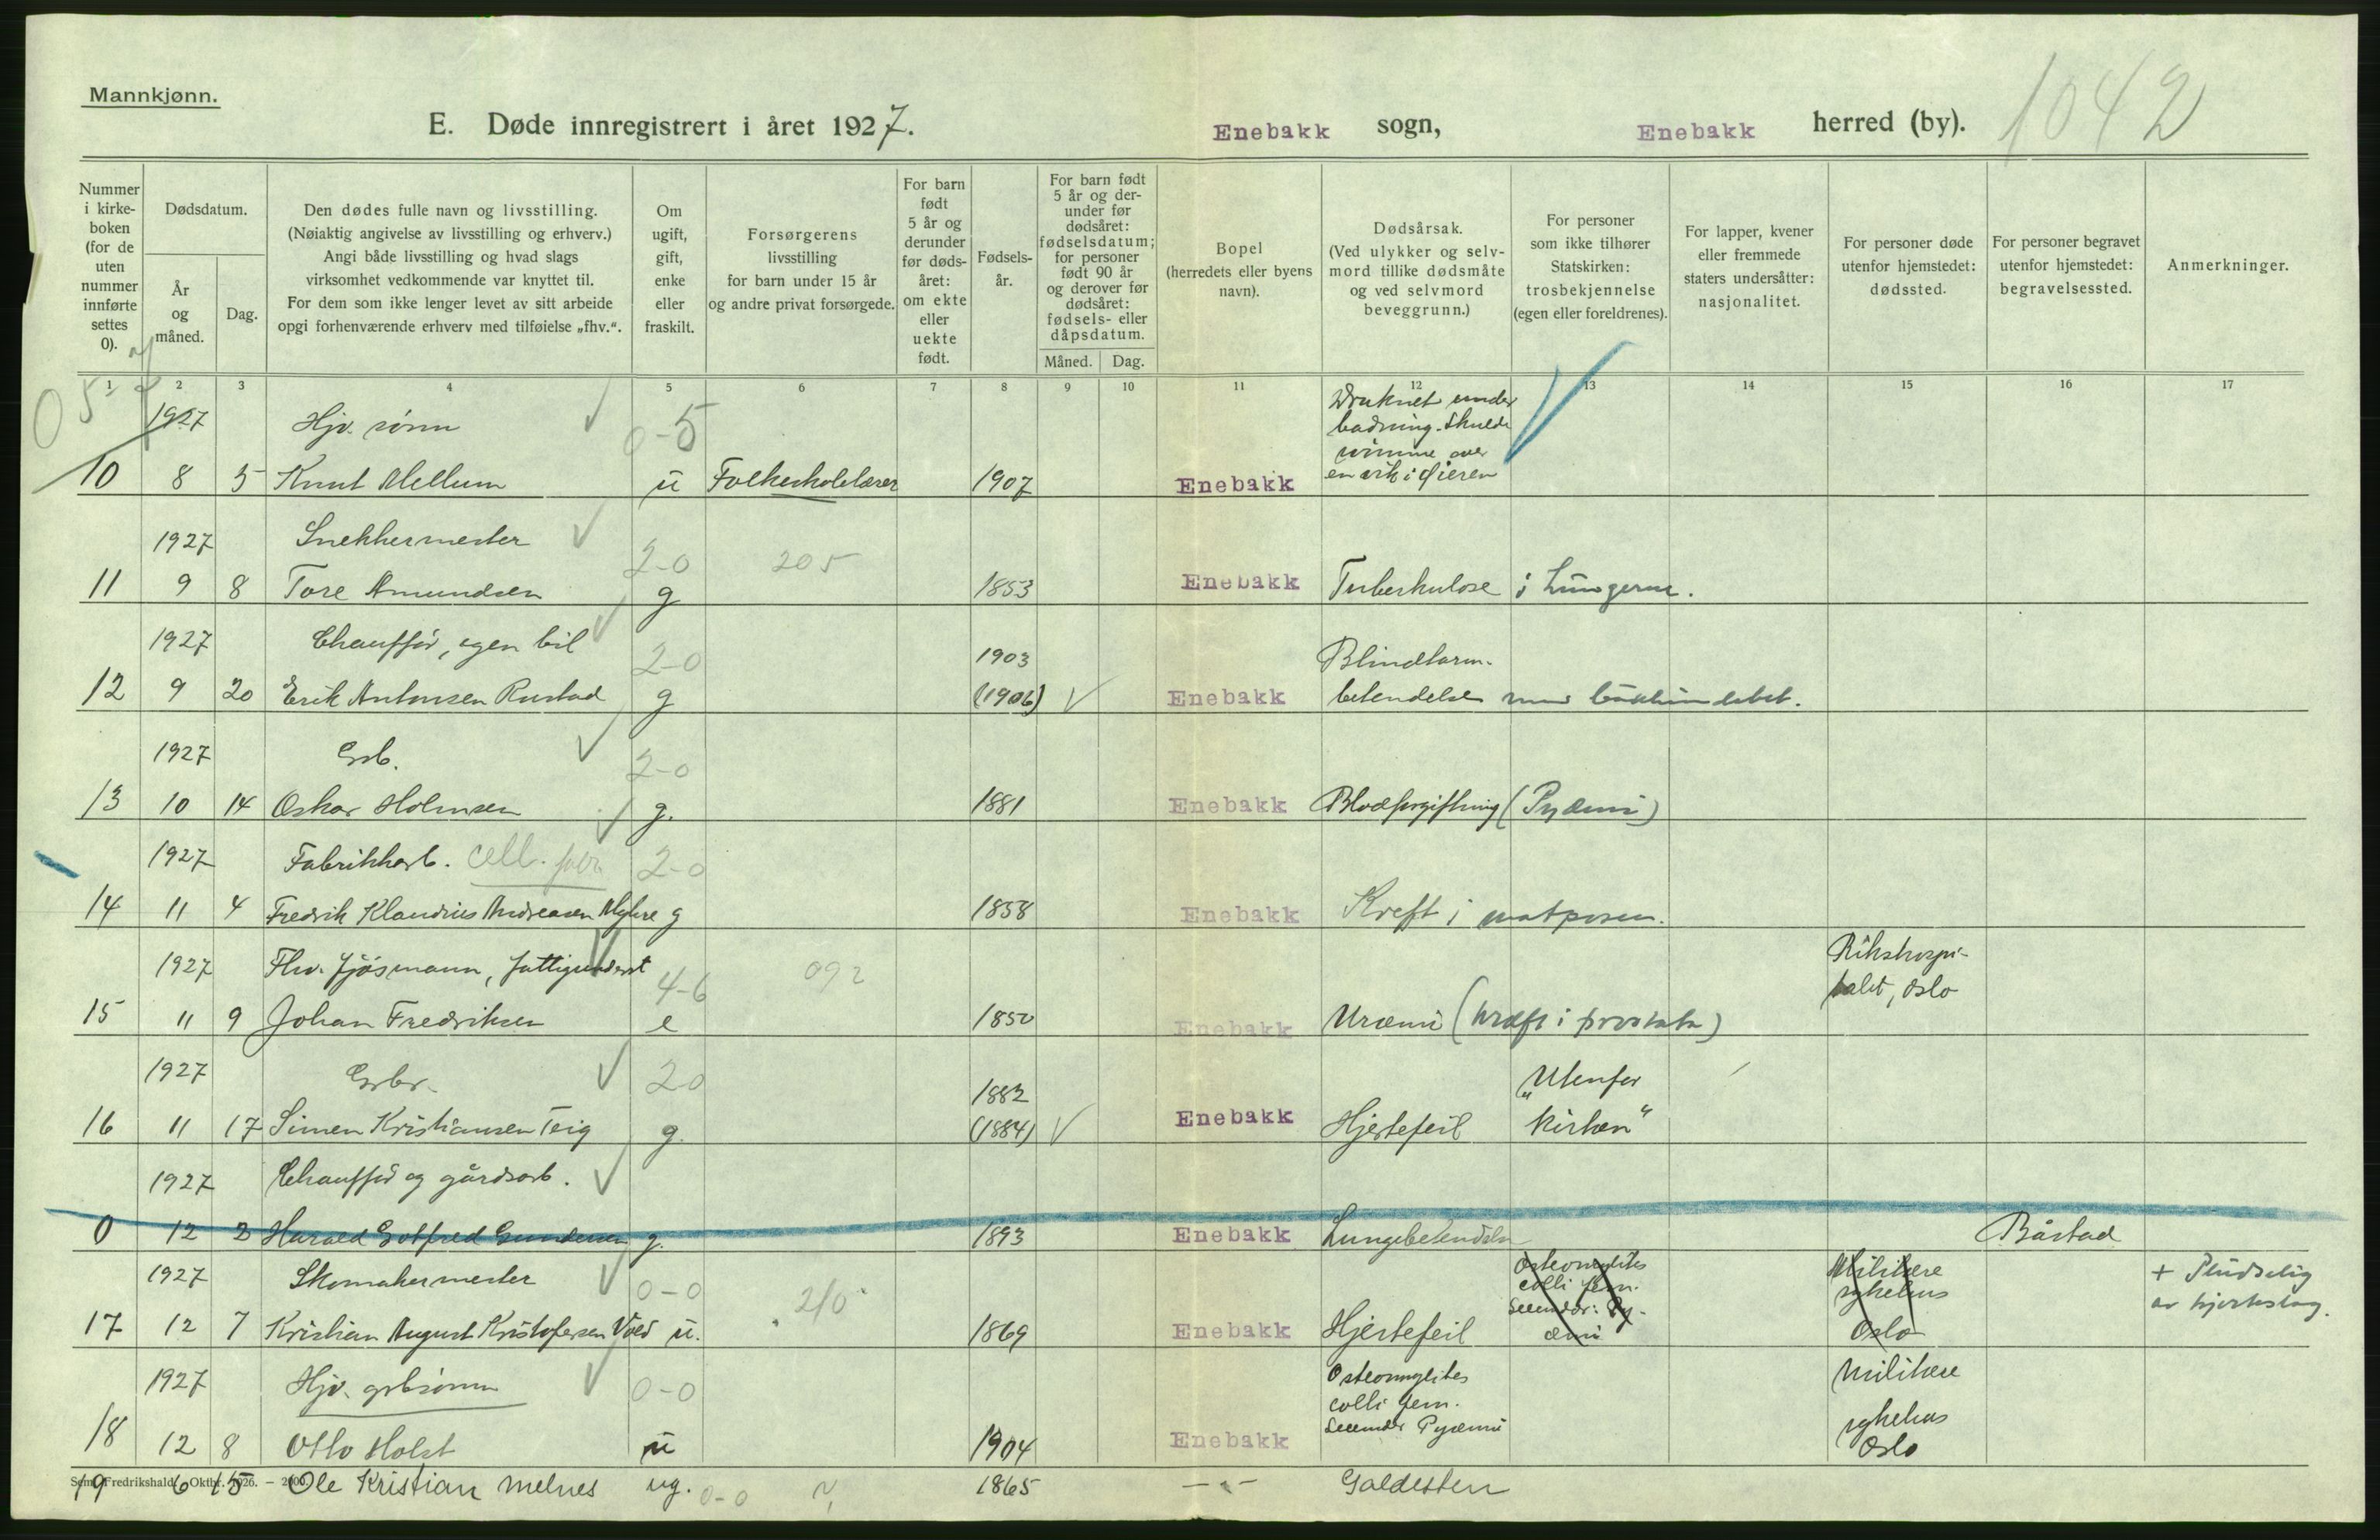 Mannkjønn.
E. Døde innregistrert i året 1927.
Enebakk sogn, Enebakk herred (by).
1042
Nummer i kirkeboken (for de uten nummer innførte settes 0).
Dødsdatum.
År og måned.
Dag.
Den dødes fulle navn og livsstilling.
(Nøiaktig angivelse av livsstilling og erhverv.)
Angi både livsstilling og hvad slags
virksomhet vedkommende var knyttet til.
For dem som ikke lenger levet av sitt arbeide
opgi forhenværende erhverv med tilføielse „fhv.“.
Om ugift, gift, enke eller fraskilt.
Forsørgerens
livsstilling
for barn under 15 år
og andre privat forsørgede.
For barn født 5 år og derunder før dødsåret: om ekte eller uekte født.
Fødselsår.
For barn født 5 år og derunder før dødsåret: fødselsdatum; for personer født 90 år og derover før dødsåret: fødsels- eller dåpsdatum.
Måned. Dag.
Bopel
(herredets eller byens
navn).
Dødsårsak.
(Ved ulykker og selvmord tillike dødsmåte
og ved selvmord
beveggrunn.)
For personer
som ikke tilhører
Statskirken:
trosbekjennelse
(egen eller foreldrenes).
For lapper, kvener
eller fremmede
staters undersåtter:
nasjonalitet.
For personer døde
utenfor hjemstedet:
dødssted.
For personer begravet
utenfor hjemstedet:
begravelsessted.
Anmerkninger.
1 2 3 4 5 6 7 8 9 10 11 12 13 14 15 16 17
05
1927 Hjv. sønn 0-5 Druknet under
badning. Skulde
svømme over
10 8 5 Knut Mellum u Folkeskolelærer 1907 Enebakk en vik i Øieren
1927 Snekkermester 2-0 205
11 9 8 Tore Amundsen g 1853 Enebakk Tuberkulose i Lungerne.
1927 Chauffør, egen bil 2-0 1903 Blindtarm-
12 9 20 Erik Antonsen Rustad g (1906) Enebakk betendelse
1927 Grb. 2-0
13 10 14 Oskar Holmsen g. 1881 Enebakk Blodforgiftning (Pyæmi)
1927 Fabrikkarb. cell. fabr. 2-0
14 11 4 Fredrik Klaudius Andreasen g 1858 Enebakk Kreft i matposen.
1927 Fhv. fjøsmann, fattigunderst 4-6 092 Rikshospi-
talet, Oslo
15 11 9 Johan Fredriksen e 1850 Enebakk Uræmi (kræft i prostata)
1927 Grbr. 20 1882 „Utenfor
16 11 17 Simen Kristiansen Teig g. (1884) Enebakk Hjertefeil kirken“
1927 Chauffør og gårdsarb.
0 12 2 Harald Gotfred Gundersen g. 1893 Enebakk Lungebetendelse Båstad
1927 Skomakermester 0-0 210 Osteomylites
colli fem.
Secundær: Py-
æmi
Militære
sykehus
Oslo
+ Pludselig
av hjerteslag.
17 12 7 Kristian August Kristofersen Vold u. 1869 Enebakk Hjertefeil
1927 Hjv. grbsønn 0-0 Osteomylites
colli fem.
Secundær Pyæmi
Militære
sykehus
Oslo
18 12 8 Otto Holst u 1904 Enebakk
Sem, Fredrikshald. Oktbr. 1926. – 2000.
19 6 15 Ole Kristian Melnes ug. 0-0 1865 — " — Galdesten